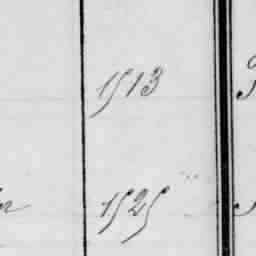 1513
1525